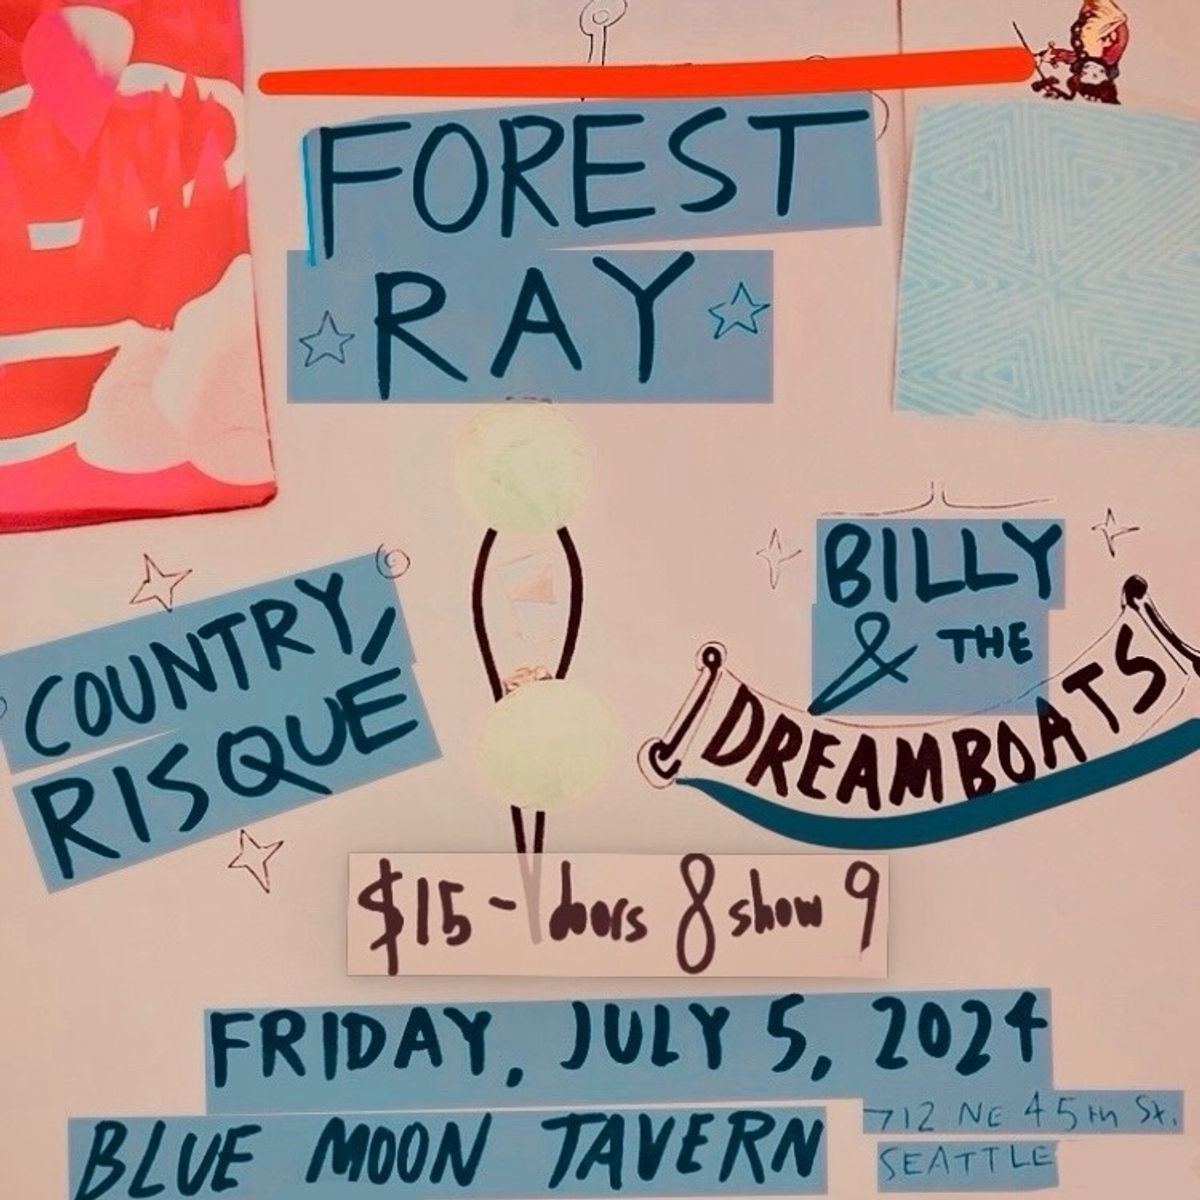 FOREST
RAY
COUNTRY,
RISQUÉ
BILLY
& THE
DREAMBOATS
$15 - doors 8 show 9
FRIDAY, JULY 5, 2024
BLUE MOON TAVERN
712 NE 45th St.
SEATTLE